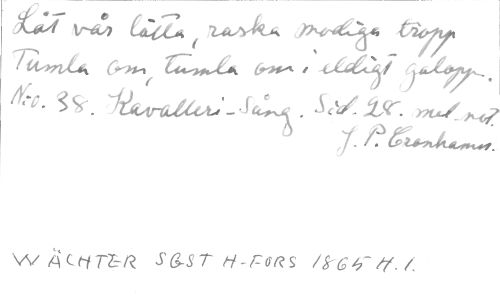 Låt vår lätta, raska modiga tropp
Tumla om, tumla om i eldigt galopp.
N:o. 38. Kavalleri-Sång. Sid. 28. mel. not.
J. P. Cronhamn.
WÄCHTER SGST H-FORS 1865 H. 1.